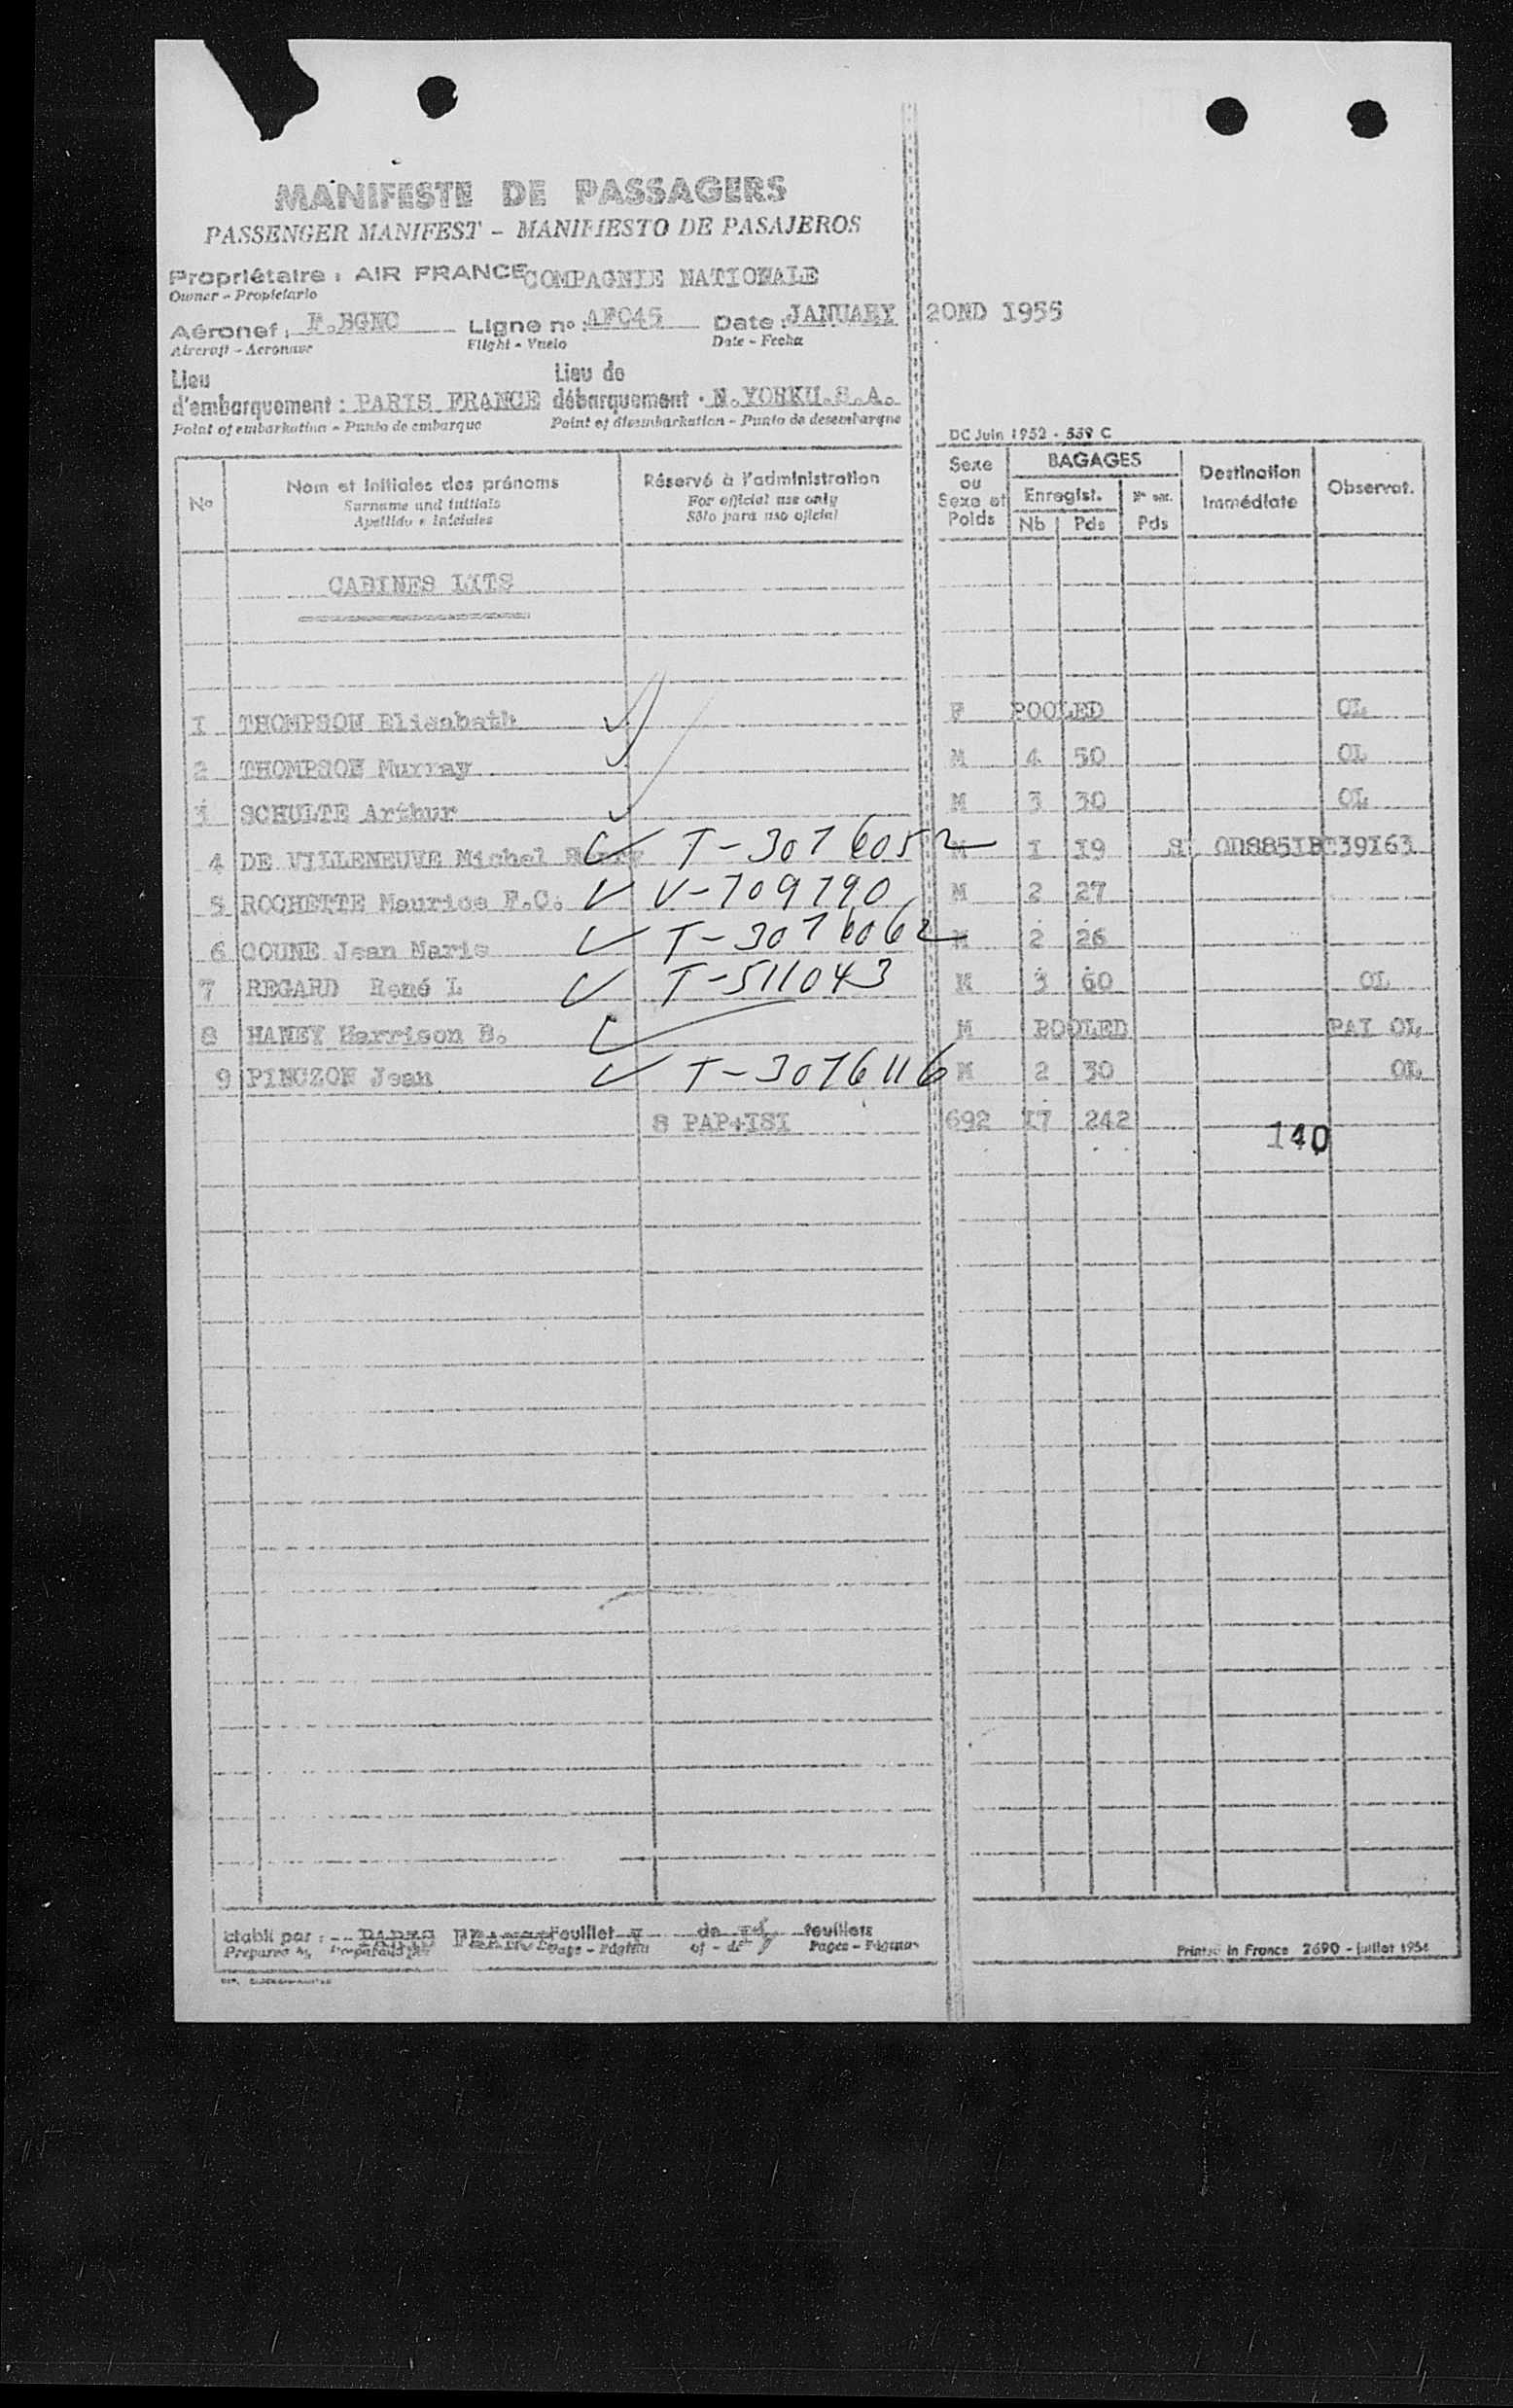 MANIFESTE DE PASSAGERS
PASSENGER MANIFEST - MANIFIESTO DE PASAJEROS
Propriétaire : AIR FRANCE COMPAGNIE NATIONALE
Owner - Propietario
Aéronef : F.BGNC Ligne no : AF045 Date : JANUARY 20ND 1955
Aircraft - Aeronave Flight - Vuelo Date - Fecha
Lieu Lieu de
d'embarquement : PARIS FRANCE débarquement : N.YORKU.S.A.
Point of embarkation - Punto de embarque Point of disembarkation - Punto de desembarque
DC Juin 1952 - 559 C
No Nom et initiales des prénoms Réservé à l'administration Sexe ou Sexe et Poids BAGAGES Destination immédiate Observat.
Surname and initials For official use only Enregist.
Apellido e iniciales Sólo para uso oficial Nb Pds Pds
CABINES LITS
1 THOMPSON Elisabath F POOLED OL
2 THOMPSON Murray M 4 50 OL
3 SCHULTE Arthur M 3 30 OL
4 DE VILLENEUVE Michel T-3076052 M I I9
5 ROCHETTE Maurice F.C. V-709790 M 2 27
6 COUNE Jean Marie T-3076062 M 2 26
7 REGARD René L T-511043 M 3 60 OL
8 HANEY Harrison B. M POOLED PAI OL
9 PINCZON Jean T-3076116 M 2 30 OL
8 PAP+ISI 692 I7 242
140
Etabli par : PARIS FRANCE Feuillet de feuillets
Prepared by Page - Página of - de Pages - Páginas
Printed in France 2690 - juillet 1954